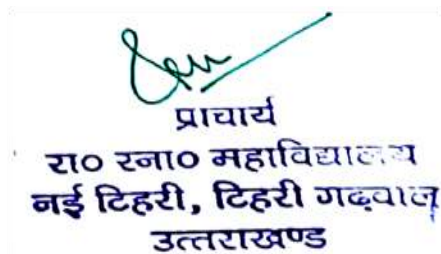 प्राचार्य
रा० स्ना० महाविद्यालय
नई टिहरी, टिहरी गढ़वाल
उत्तराखण्ड